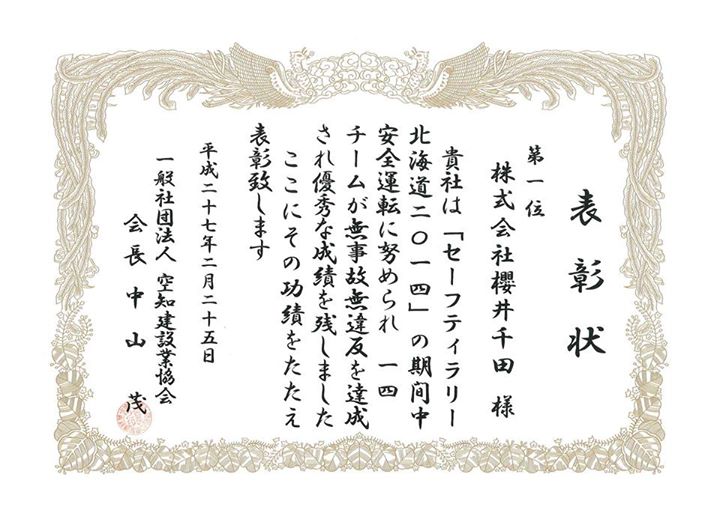 表彰状
第一位
株式会社櫻井千田 様
貴社は「セーフティラリー
北海道二〇一四」の期間中
安全運転に努められ 一四
チームが無事故無違反を達成
され優秀な成績を残しました
ここにその功績をたたえ
表彰致します
平成二十七年二月二十五日
一般社団法人 空知建設業協会
会長 中山 茂